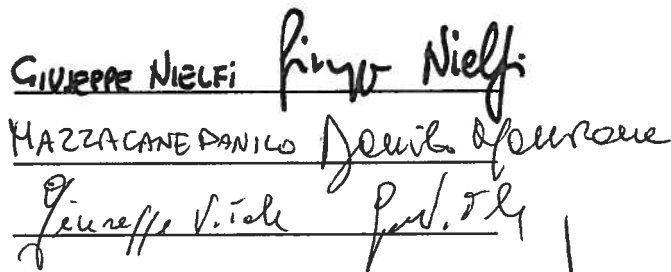 GIUSEPPE NIELFI Giuseppe Nielfi
MAZZACANE DANILO Danilo Mazzacane
Giuseppe Vitale